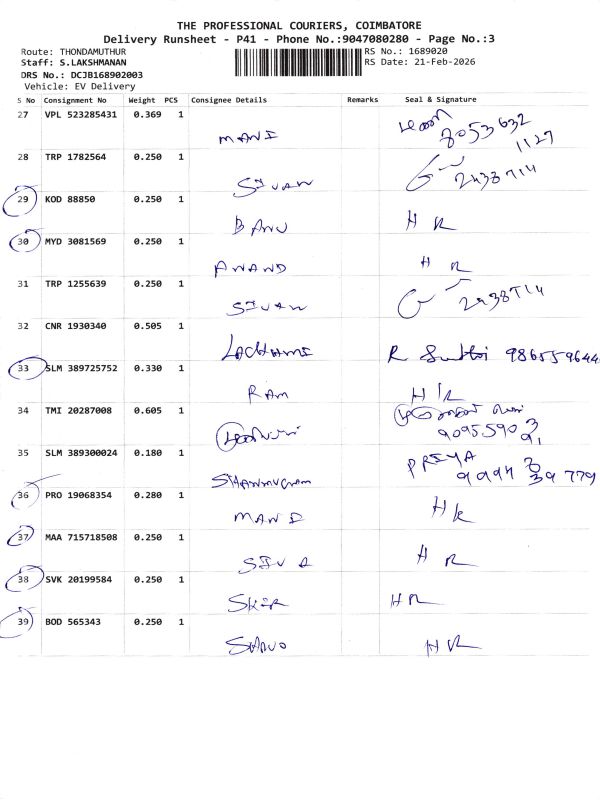 THE PROFESSIONAL COURIERS, COIMBATORE
Delivery Runsheet - P41 - Phone No.:9047080280 - Page No.:3
Route: THONDAMUTHUR RS No.: 1689020
Staff: S.LAKSHMANAN RS Date: 21-Feb-2026
DRS No.: DCJB168902003
Vehicle: EV Delivery
S No Consignment No Weight PCS Consignee Details Remarks Seal & Signature
27 VPL 523285431 0.369 1
MANI 8053632
1127
28 TRP 1782564 0.250 1
SIVAN 2438714
29 KOD 88850 0.250 1
BANU H R
30 MYD 3081569 0.250 1
ANAND H R
31 TRP 1255639 0.250 1
SIVAN 2438714
32 CNR 1930340 0.505 1
LACHAMI R 986559644
33 SLM 389725752 0.330 1
RAM H R
34 TMI 20287008 0.605 1
90955903
91
35 SLM 389300024 0.180 1
SHANMUGAM PRIYA
36 PRO 19068354 0.280 1
MANI HR
37 MAA 715718508 0.250 1
SIVA H R
38 SVK 20199584 0.250 1
HR
39 BOD 565343 0.250 1
HR